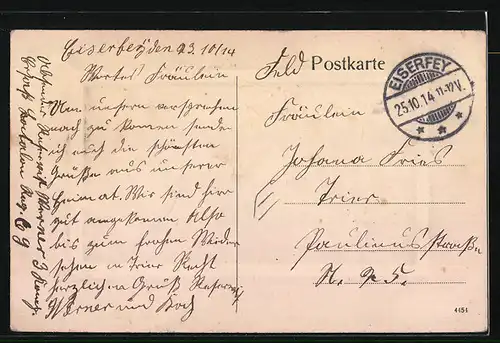 Eiserfey den 23.10/14
Wertes Fräulein
Um unsern versprechen
nach zu kommen sende
ich euch die schönsten
Grüße aus unserer
Heimat. Wir sind hier
gut angekommen Also
bis zum frohen Wieder
sehen in Trier Recht
herzlichen Gruß
Werner und Koch
Feld Postkarte
EISERFEY
25.10.14 11-12V.
Fräulein
Johana Fries
Trier
Paulinusstraße
N. 5.
4451